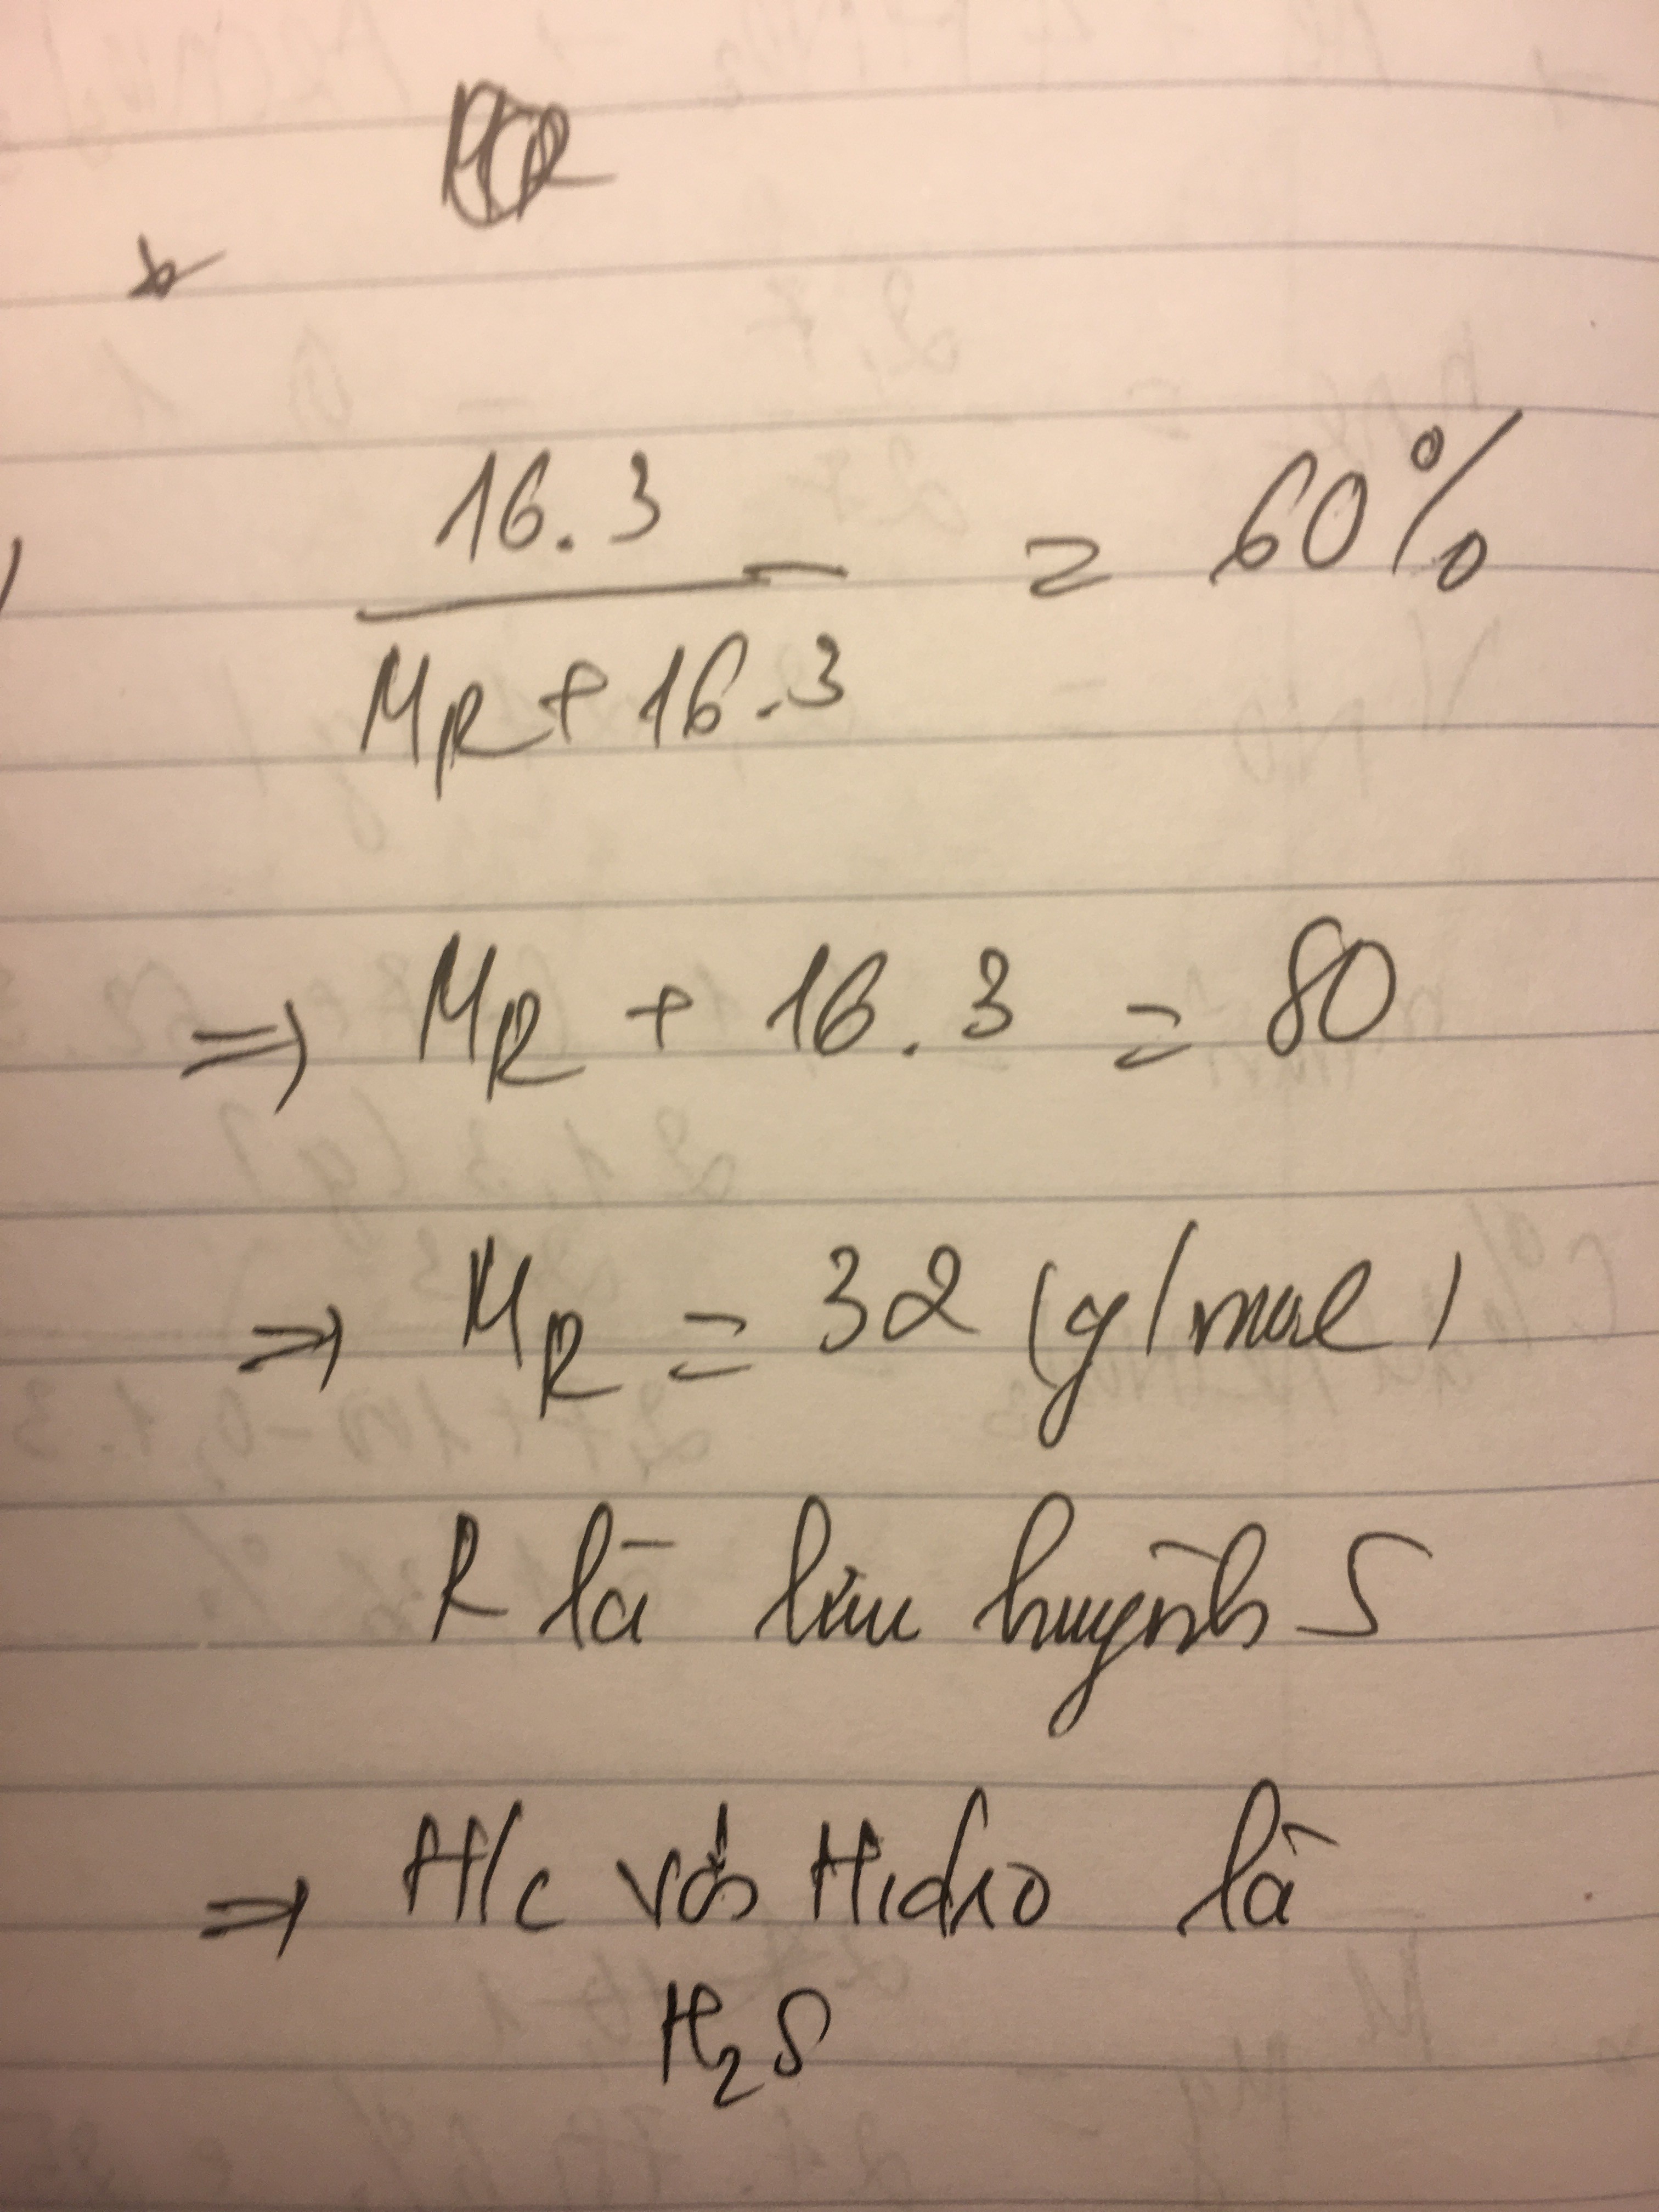 16.3
MR + 16.3
= 60%
=> MR + 16.3 = 80
=> MR = 32 (g/mol)
R là lưu huỳnh S
=> H/c với Hidro là
H2S